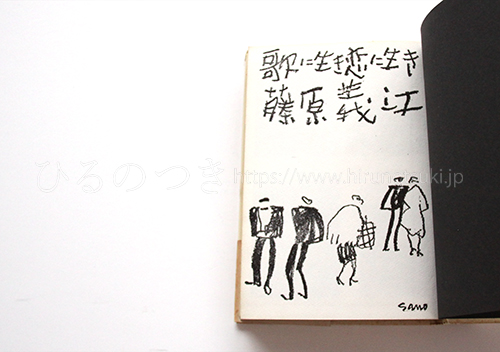 歌に生き恋に生き
藤原義江
ひるのつき https://www.hirunotsuki.jp
SANO